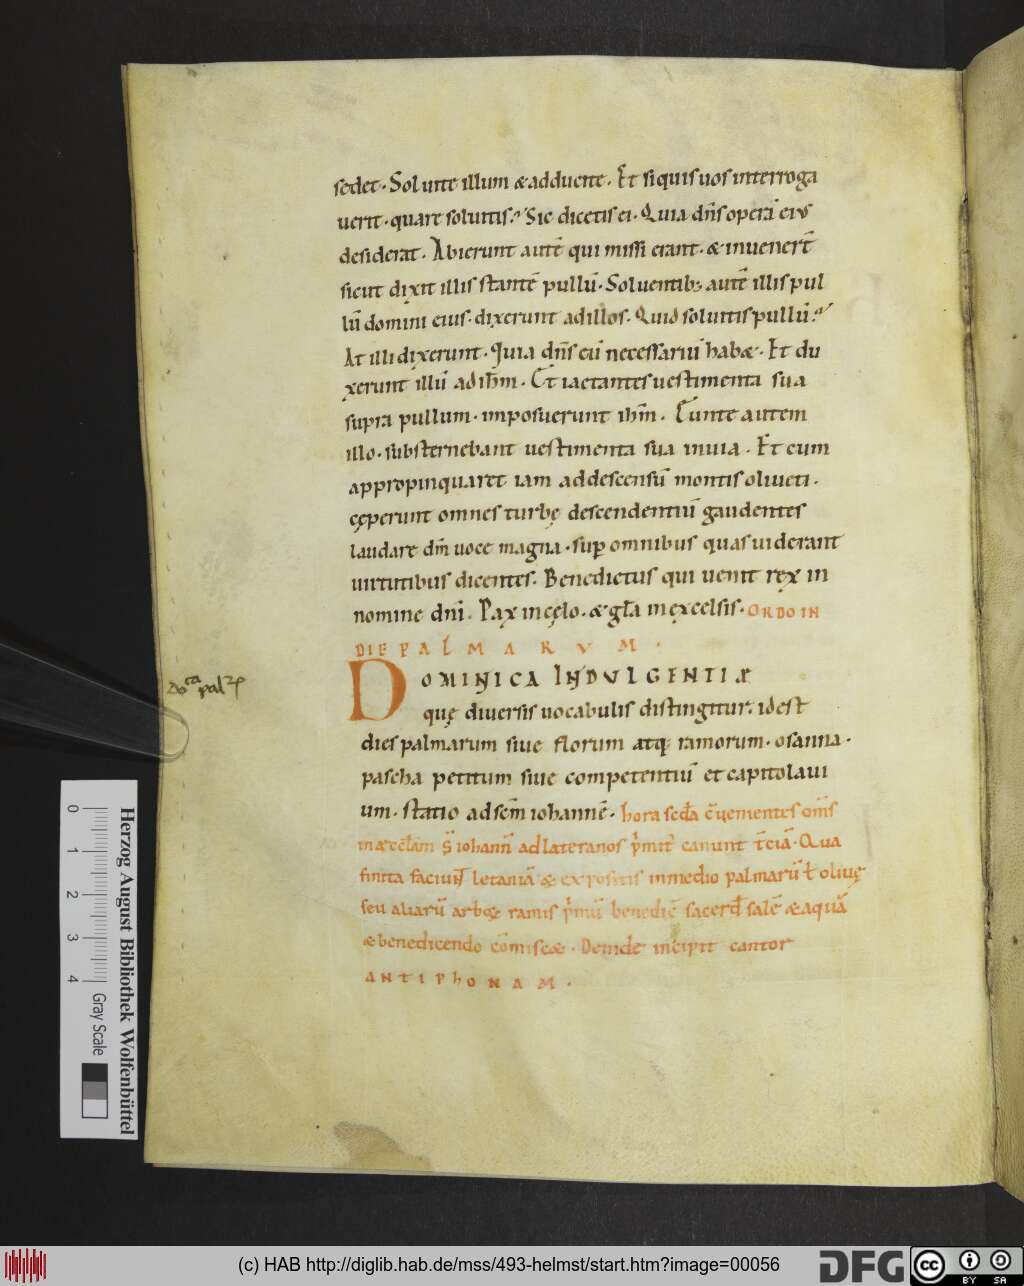 sedet. Soluite illum & adducite. Et siquis uos interroga
uerit. quare soluitis? Sic dicetis ei. Quia dn̄s operā eius
desiderat. Abierunt autē qui missi erant. & inuener̄t
sicut dixit illis stantē pullū. Soluentib; autē illis pul
lū domini eius. dixerunt adillos. Quid soluitis pullū?
At illi dixerunt. Quia dn̄s eū necessariū hab&. Et du
xerunt illū ad ih̄m. Et iactantes uestimenta sua
supra pullum. imposuerunt ih̄m. Eunte autem
illo. substernebant uestimenta sua inuia. Et cum
appropinquaret iam addescensū montis oliueti.
cęperunt omnes turbę descendentiū gaudentes
laudare dm̄ uoce magna. sup omnibus quas uiderant
uirtutibus dicentes. Benedictus qui uenit rex in
nomine dn̄i. Pax incęlo. & gl̄a in excelsis. ORDO IN
DIE PALMARVM.
DOMINICA INDULGENTIAE
quę diuersis uocabulis distingitur. id est
dies palmarum siue florum atq; ramorum. osanna.
pascha petitum siue competentiū et capitolaui
um. statio ad scm̄ iohannē. hora scd̄a c̄uenientes om̄s
in æccl̄am s̄ iohann̄ ad lateranos p̄mit̄ canunt t̄ciā. Qua
finita faciun̄t letaniā & expositis inmedio palmarū ł oliuę
seu aliarū arboꝝ ramis p̄mū benedic̄ sacerd̄ salē & aquā
& benedicendo cōmisc&. Deinde incipit cantor
ANTIPHONAM.
pal
Herzog August Bibliothek Wolfenbüttel
0 1 2 3 4
Gray Scale
(c) HAB http://diglib.hab.de/mss/493-helmst/start.htm?image=00056
DFG
cc
BY SA